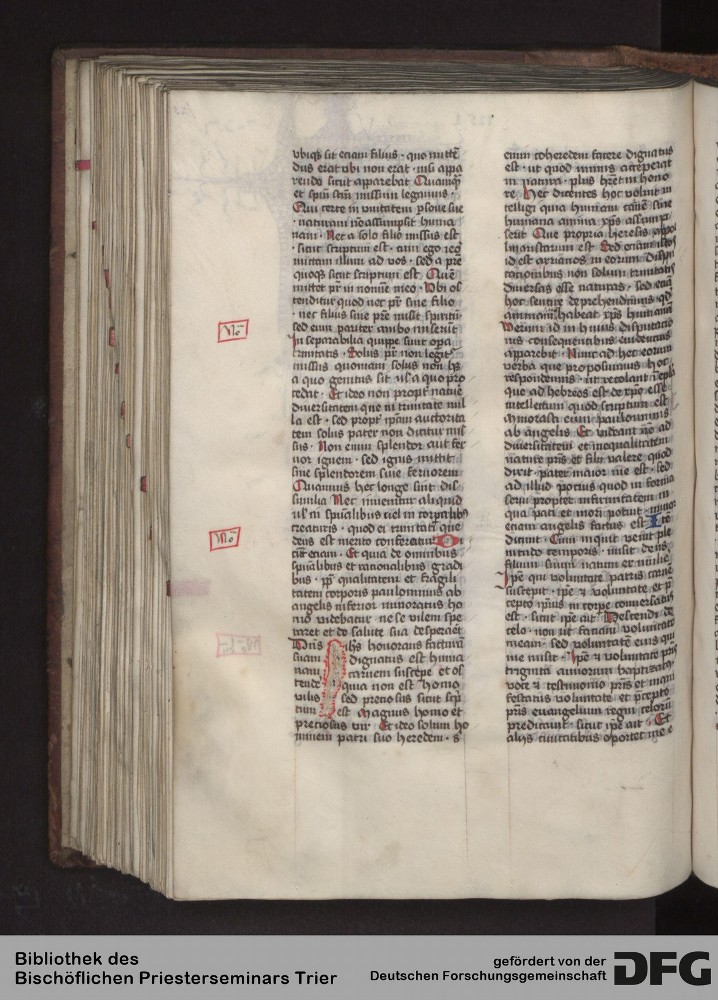 vbiqꝫ sit eciam filius · quo mittē
dus erat vbi non erat · nisi appa
rendo sicut apparebat Quamqꝫ
et spm̄ scm̄ missum legamus ·
Qui certe in vnitatem ꝑsone sue
· naturam nō assumpsit huma
nam · Nec a solo filio missus est
· sicut scriptum est · cum ego ieō
mittam illum ad vos · sed a pr̄e
quoqꝫ sicut scriptum est · Quē
mittet pr̄ in nomine meo · Vbi os
tenditur quod nec pr̄ sine filio
· nec filius sine pr̄e misit spiritū
sed eum pariter ambo miserūt
In separabilia quippe sunt opa
trinitatis · Solus pr̄ non legit᷑
missus quoniam solus non hꝫ
a quo genitus sit ul̓ a quo pro
cedat · Et ideo non propt̓ nature
diuersitatem que in trinitate nul
la est · sed propt̓ ipsam auctorita
tem solus pater non dicitur mis
sus · Non enim splendor aut fer
uor ignem · sed ignis mittit
siue splendorem siue feruorem
Quamuis hec longe sint dis
similia Nec inuenitur aliquid
ul̓ in spūalibus uel in corꝑalibꝫ
creaturis · quod ei trinitati que
deus est merito conferatur
eciam · Et quia de omnibus
spūalibus et racionalibus gradi
bus · ꝓpt̓ qualitatem et fragili
tatem corporis paulominus ab
angelis inferior minoratus ho
mo videbatur · ne se vilem spe
raret et de salute sua desperaret
Dn̄s ihs honorans facturā
suam dignatus est huma
nam carnem suscipe et os
tende quia non est homo
vilis sed preciosus sicut scp̄
tum est Magnus homo et
preciosus vir Et ideo solum ho
minem patri suo heredem · s
enim coheredem facere dignatus
est · ut quod minus acceperat
in natura · plus hr̄et in hono
re Hec dicentes hoc volunt in
telligi quia humanā carnē sine
humana anima xp̄s assump
serit Que propria heresis appol
linaristarum est Sed eciam istos
id est arrianos in eorum dispu
tacionibus non solum trinitatis
diuersas esse naturas · sed eciā
hoc sentire deprehendimus qd̓
animam habeat xp̄s humanā
Verum ad in huius disputacio
nis consequentibus euidencius
apparebit · Nunc ad hec eorum
verba que proposuimus hoc
respondemus · ut recolant ī epl̄a
que ad hebreos est de xp̄o esse
intellectum quod scriptum est
minorasti eum paulominus
ab angelis Et videant nō ad
diuersitatem et inequalitatem
nature pr̄is et filij valere quod
dixit · pater maior me est · sed
ad illud pocius quod in forma
serui propter infirmitatem in
qua pati et mori potuit minor
eciam angelis factus est Itē
dicunt · Cum inquit venit ple
nitudo temporis · misit deus
filium suum natum ex muliere
Ipe qui voluntate patris carnē
suscepit · ipe et voluntate et p̄
cepto ip̄ius in corpe conuersatus
est · sicut ipe ait Descendi de
celo · non ut faciam voluntatē
meam · sed voluntatē eius qui
me misit · Ipe et voluntate pris
triginta annorum baptizatus
voce et testimonio pr̄is et mani
festatus voluntate et p̄cepto
pr̄is euangelium regni celorū
predicauit · sicut ipe ait · Et
alijs ciuitatibus oportet me e
Nō
Nō
Bibliothek des
Bischöflichen Priesterseminars Trier
gefördert von der
Deutschen Forschungsgemeinschaft
DFG